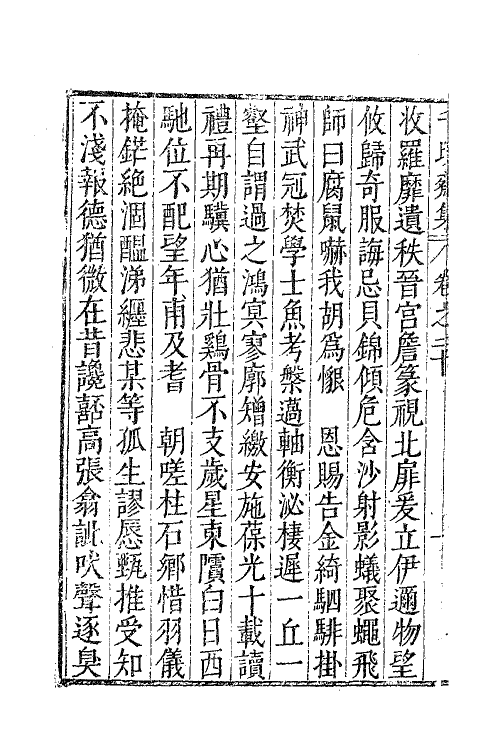 收羅靡遺秩晉宮詹篆視北扉爰立伊邇物望
攸歸奇服誨忌貝錦傾危含沙射影蟻聚蠅飛
師曰腐鼠嚇我胡爲懇 恩賜告金綺駟騑掛
神武冠焚學士魚考槃邁軸衡泌棲遲一丘一
壑自謂過之鴻冥寥廓矰繳安施葆光十載讀
禮再期驥心猶壯鷄骨不支歲星東隤白日西
馳位不配望年甫及耆 朝嗟柱石鄉惜羽儀
掩鋩絶涸醖涕纏悲某等孤生謬愿甄推受知
不淺報德猶微在昔讒嚭高張翕訿吠聲逐臭